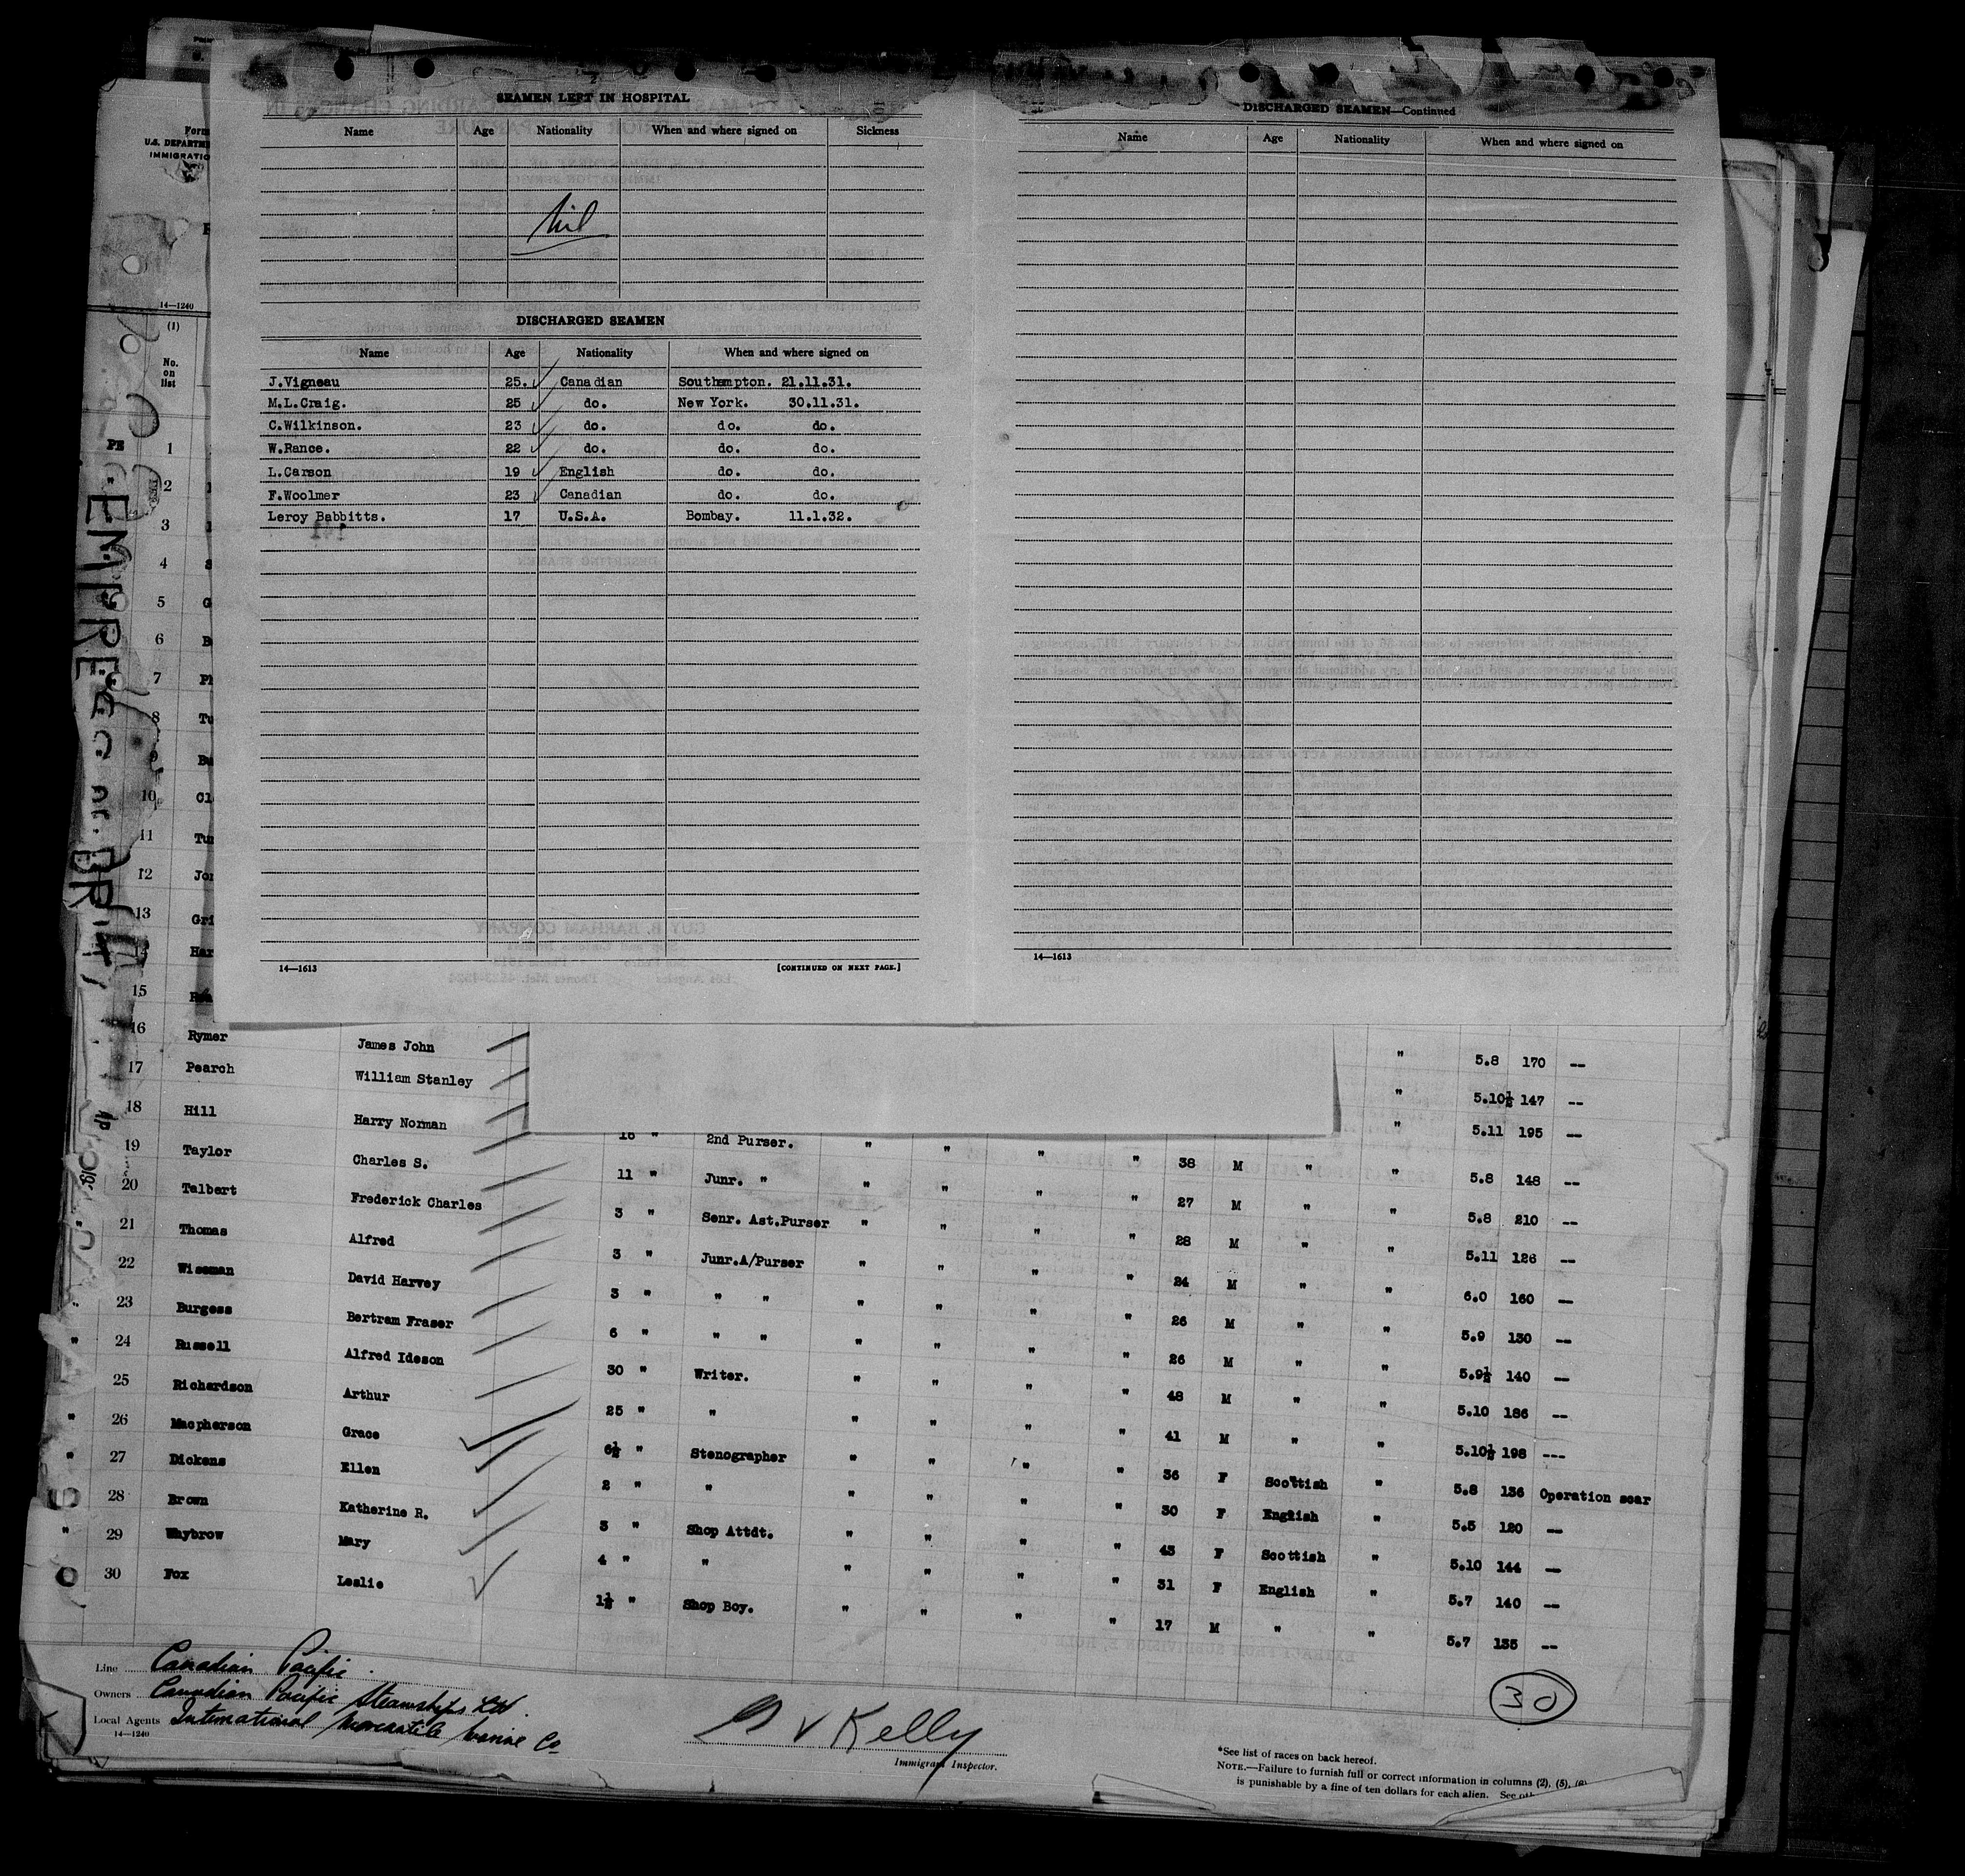 SEAMEN LEFT IN HOSPITAL
Name Age Nationality When and where signed on Sickness
Nil
DISCHARGED SEAMEN
Name Age Nationality When and where signed on
J.Vigneau 25. Canadian Southampton. 21.11.31.
M.L.Craig. 25 do. New York. 30.11.31.
C.Wilkinson. 23 do. do. do.
W.Rance. 22 do. do. do.
L.Carson 19 English do. do.
F.Woolmer 23 Canadian do. do.
Leroy Babbitts. 17 U.S.A. Bombay. 11.1.32.
14—1613 [CONTINUED ON NEXT PAGE.]
DISCHARGED SEAMEN—Continued
Name Age Nationality When and where signed on
14—1613
Form
U.S. DEPARTME
IMMIGRATIO
14—1240
(1)
No. on list
1
2
3
4
5 G
6 B
7 Ph
8 Tu
9 Bu
10 Cl
11 Tur
12 Jor
13 Gri
14 Har
15
EMPRESS OF BRIT
16 Rymer James John " 5.8 170 --
17 Pearch William Stanley " 5.10½ 147 --
18 Hill Harry Norman " 5.11 195 --
19 Taylor Charles S. 16 " 2nd Purser. " " " " 38 M " " 5.8 148 --
20 Talbert Frederick Charles 11 " Junr. " " " " " 27 M " " 5.8 210 --
21 Thomas Alfred 3 " Senr. Ast.Purser " " " " 28 M " " 5.11 126 --
22 Wiseman David Harvey 3 " Junr.A/Purser " " " " 24 M " " 6.0 160 --
23 Burgess Bertram Fraser 3 " " " " " " " 26 M " " 5.9 130 --
24 Russell Alfred Ideson 6 " " " " " " " 26 M " " 5.9½ 140 --
25 Richardson Arthur 30 " Writer. " " " " 48 M " " 5.10 186 --
26 Macpherson Grace 25 " " " " " " 41 M " " 5.10½ 198 ---
27 Dickens Ellen 6½ " Stenographer " " " " 36 F Scottish " 5.8 136 Operation scar
28 Brown Katherine R. 2 " " " " " " 30 F English " 5.5 120 --
29 Whybrow Mary 3 " Shop Attdt. " " " " 43 F Scottish " 5.10 144 --
30 Fox Leslie 4 " " " " " " 31 F English " 5.7 140 --
1½ " Shop Boy. " " " " 17 M " " 5.7 135 --
30
Line Canadian Pacific.
Owners Canadian Pacific Steamships Ltd.
Local Agents International Mercantile Marine Co
14—1240
G V Kelly
Immigrant Inspector.
*See list of races on back hereof.
NOTE.—Failure to furnish full or correct information in columns (2), (5), (6)
is punishable by a fine of ten dollars for each alien. See oth